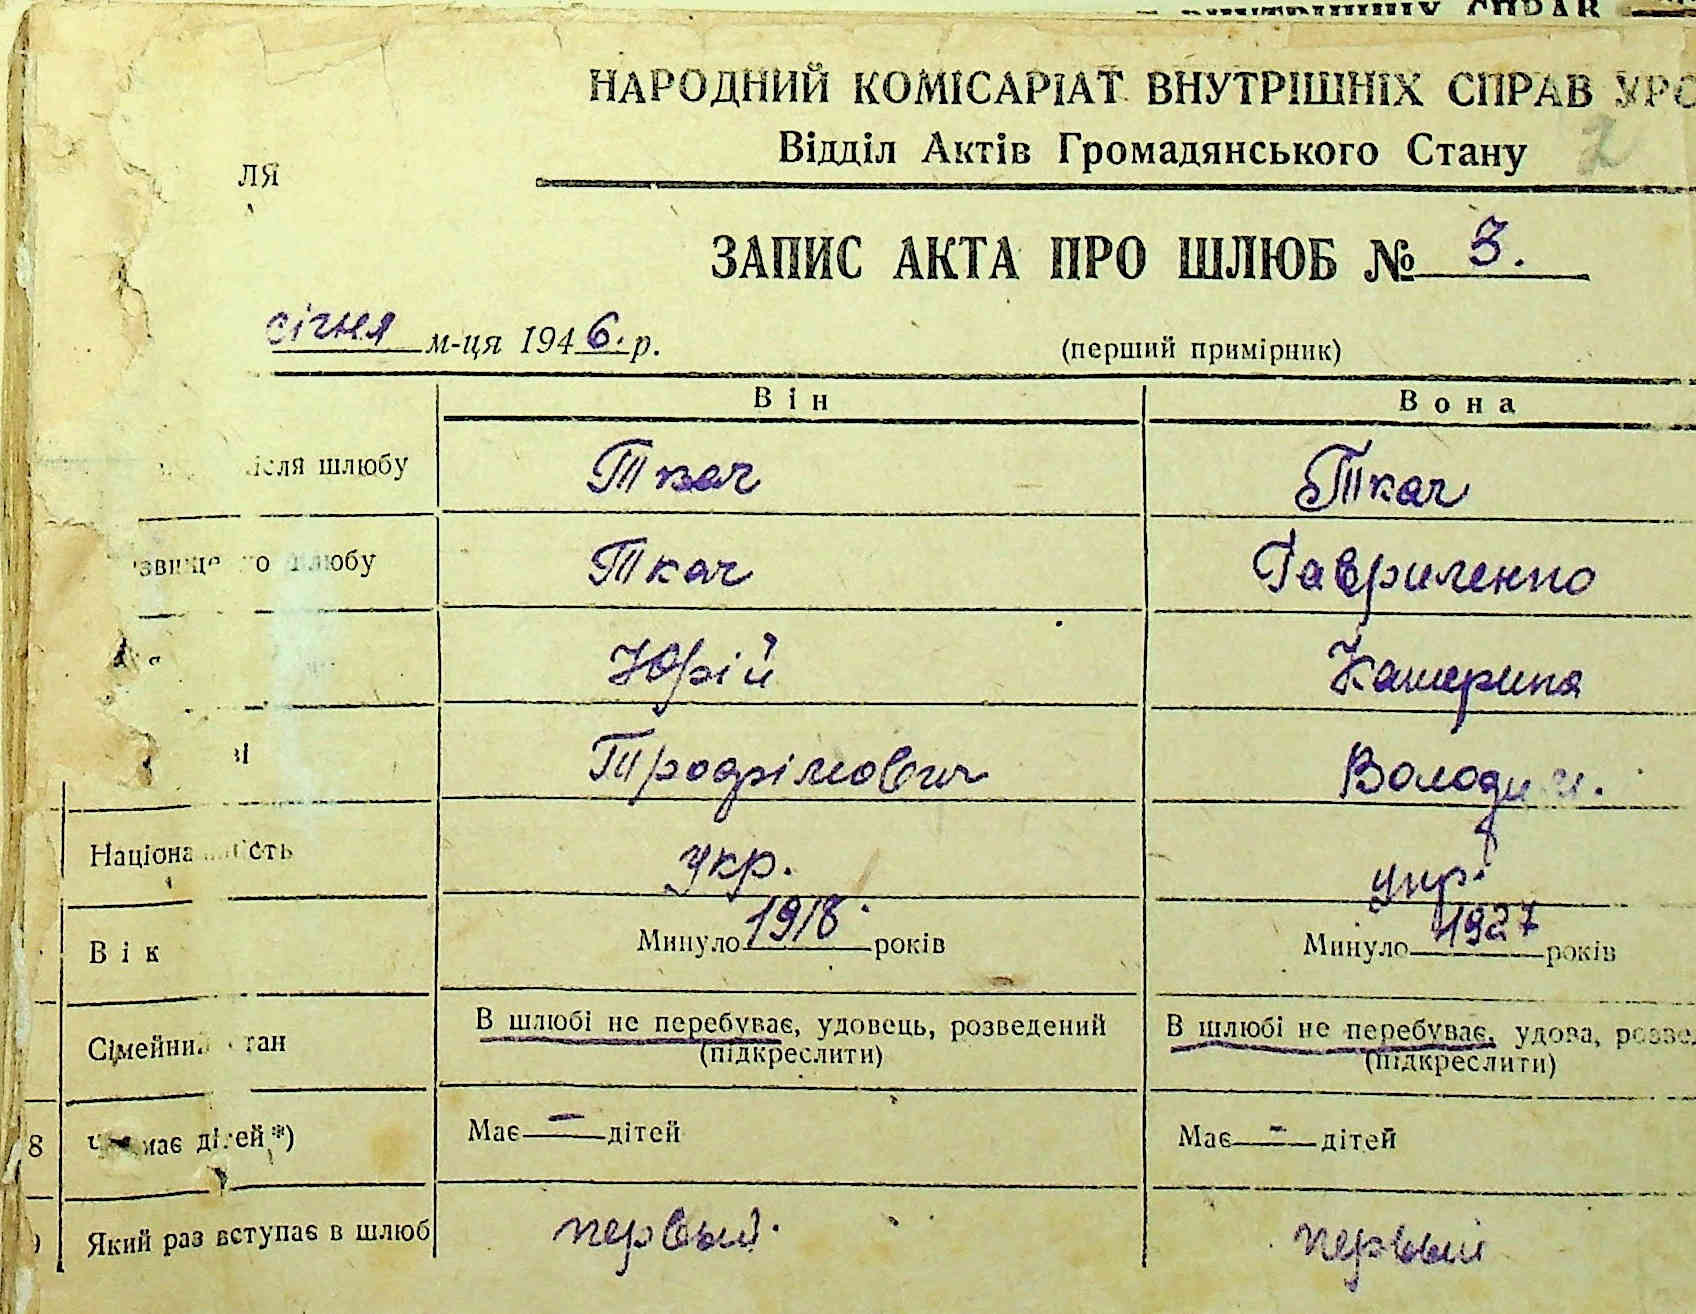 ВНУТРІШНІХ СПРАВ
НАРОДНИЙ КОМІСАРІАТ ВНУТРІШНІХ СПРАВ УРС
Відділ Актів Громадянського Стану 2
ля
ЗАПИС АКТА ПРО ШЛЮБ № 3.
січня м-ця 1946. р. (перший примірник)
Він Вона
ісля шлюбу Ткач Ткач
звище до шлюбу Ткач Гавриленко
Юрій Катерина
ві Трофімович Володим.
Національність укр. укр.
Вік Минуло 1918. років Минуло 1927 років
Сімейний стан В шлюбі не перебуває, удовець, розведений В шлюбі не перебуває, удова, розвед
(підкреслити) (підкреслити)
8 Чи має дітей*) Має — дітей Має — дітей
Який раз вступає в шлюб первый. первый